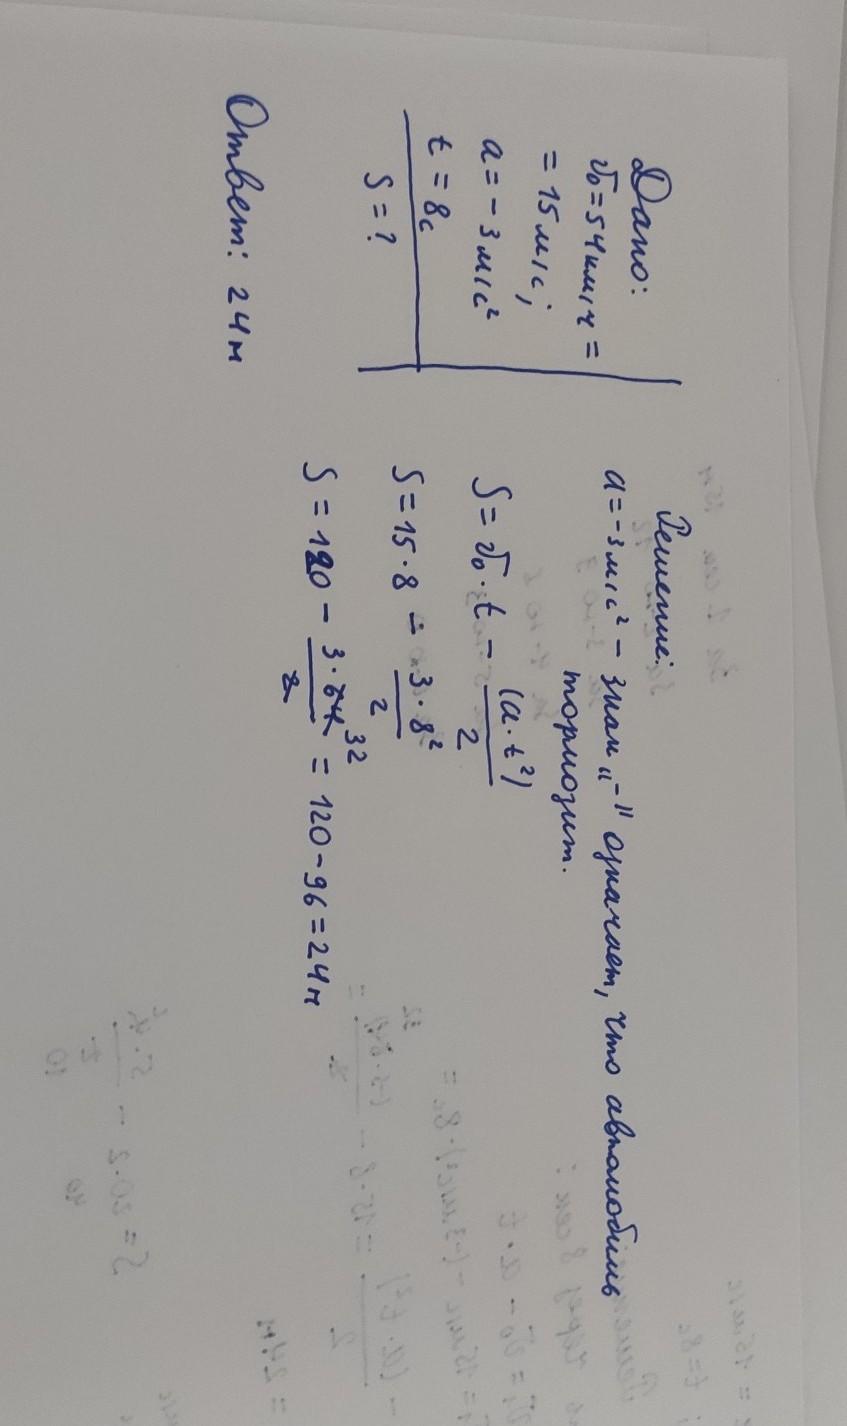 Дано:
v₀ = 54 км/ч =
= 15 м/с;
a = - 3 м/с²
t = 8с
S = ?
Решение:
a = -3 м/с² - знак „-" означает, что автомобиль
тормозит.
S = v₀ · t - (a · t²) / 2
S = 15 · 8 - 3 · 8² / 2
S = 120 - 3 · 64 32 / 2 = 120 - 96 = 24 м
Ответ: 24 м